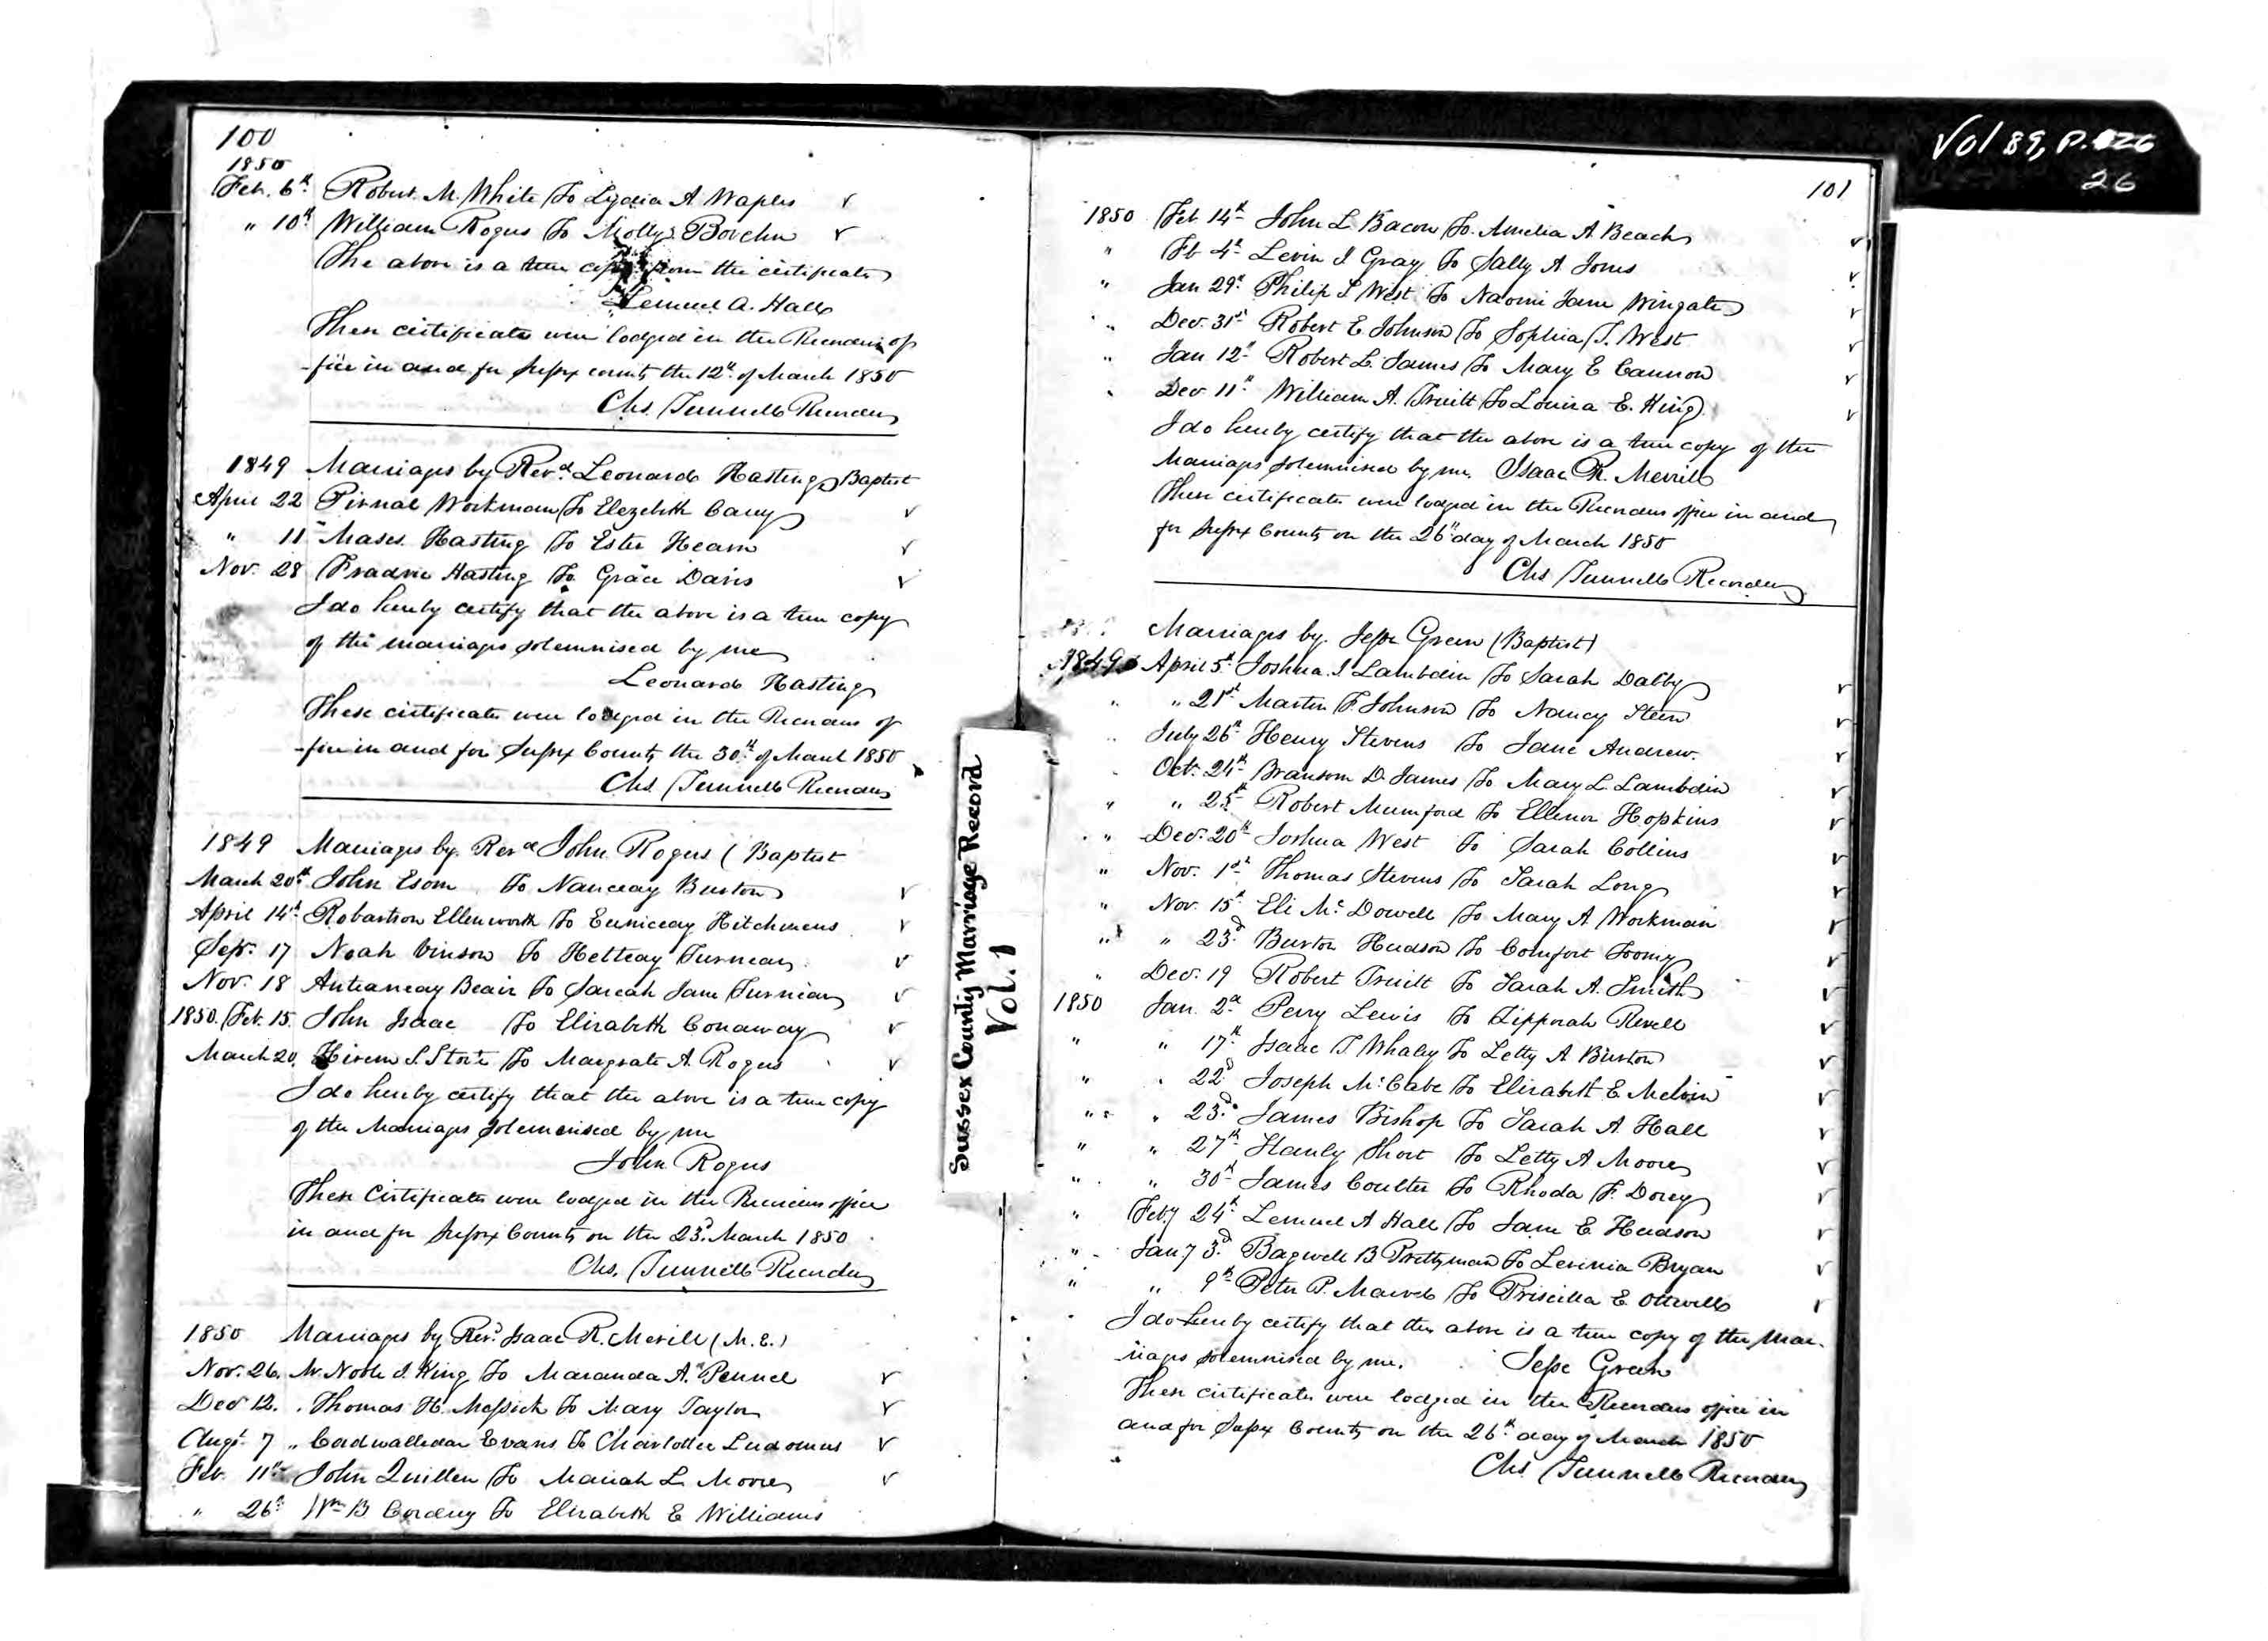 100
1850
Feb. 6th Robert M. White To Lydia A Waples
" 10th William Rogus To Molly Bovelin
The above is a true copy from the certificates
Lemuel A. Hall
These certificates were lodged in the Recorders of
-fice in and for Sussex county the 12th of March 1850
Chs. Tunnell Recorder
1849 Marriages by Revd. Leonard Hastings Baptist
April 22 Pirnal Workman To Elezebeth Cary
" 11th Mases Hasting To Ester Hearn
Nov. 28 Fradric Hasting To Grace Davis
I do hereby certify that the above is a true copy
of the marriages solemnised by me
Leonard Hasting
These certificates were lodged in the Recorders of
-fice in and for Sussex County the 30th of March 1850
Chs. Tunnell Recorder
1849 Marriages by Revd John Rogers ( Baptist
March 20th John Esom To Nanceay Burton
April 14th Robartson Ellenworth To Euniceay Hitchmens
Sepr. 17 Noah Vinson To Hetteay Turnean
Nov. 18 Antianeay Beair To Sareah Jane Turnean
1850. Feb. 15. John Isaac To Elizabeth Conaway
March 20. Hirem S. Stort To Margrate A. Rogers
I do hereby certify that the above is a true copy
of the Marriages Solemenised by me
John Rogers
These Certificates were lodged in the Recorders office
in and for Sussex County on the 23d. March 1850
Chs. Tunnell Recorder
1850 Marriages by Revd. Isaac R. Merill (M.E.)
Nov. 26. W. Noble J. King To Maranda A. Pennel
Dec 12. Thomas H. Messick To Mary Taylor
Augt. 7 " Cadwalledar Evans To Charlottee Ludomus
Feb. 11th John Quillen To Mariah L. Moore
" 26th Wm B Cordrey To Elizabeth E Williams
Sussex County Marriage Record
Vol. 1
Vol 89, P. 26
26
101
1850 Feb 14th John L. Bacon To Amelia A. Beach
" Fb 4th Levin J Gray To Sally A Jones
" Jan 29th Philip S West To Naomi Jane Wingate
" Dec. 31st Robert E. Johnson To Sophia T. West
" Jan 12th Robert L. James To Mary E Cannon
" Dec 11th William A. Truitt To Louisa E. King
I do hereby certify that the above is a true copy of the
Marriages solemnised by me. Isaac R. Merrill
These certificates were lodged in the Recorders office in and
for Sussex County on the 26th day of March 1850
Chs Tunnell Recorder
Marriages by. Jesse Green (Baptist)
1849 April 5th Joshua J Lambdin To Sarah Dalby
" " 21st Martin F. Johnson To Nancy Steen
" July 26th Henry Stevens To Jane Andrew.
" Oct. 24th Bransom D. James To Mary L. Lambdin
" " 25th Robert Mumford To Ellenor Hopkins
" Dec. 20th Joshua West To Sarah Collins
" Nov. 1st Thomas Stevens To Sarah Long
" Nov. 15th Eli Mc Dowell To Mary A Workman
" " 23d. Burton Hudson To Comfort Toomy
" Dec. 19 Robert Truitt To Sarah A. Smith
1850 Jan. 2d Perry Lewis To Zipporah Revell
" " 17th Isaac T Whaley To Letty A Burton
" " 22d Joseph McCabe To Elizabeth E. Melvin
" " 23d. James Bishop To Sarah A. Hall
" " 27th Hanly Short To Letty A Moore
" " 30th James Coulter To Rhoda F. Dorey
" Feby 24th Lemuel A Hall To Jane E. Hudson
" Jany 3d. Bagwell B Prettyman To Levinia Bryan
" " 9th Peter P. Marvel To Priscilla E. Ottwell
I do hereby certify that the above is a true copy of the Mar-
riages solemnised by me. Jesse Green
These certificates were lodged in the Recorders office in
and for Sussex County on the 26th day of March 1850
Chs Tunnell Recorder